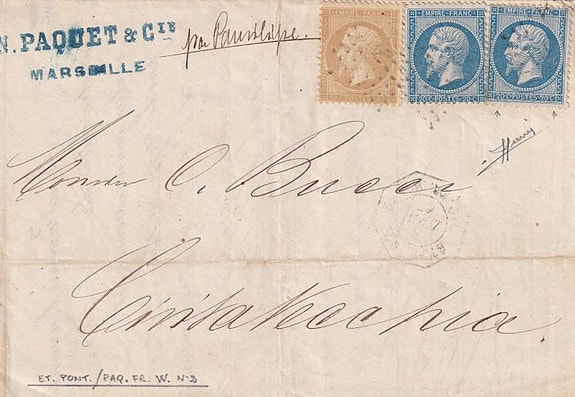 N. PAQUET & CIE
MARSEILLE
par Pausilippe.
EMPIRE FRANC
EMPIRE FRANC
20 C POSTES 20 C
20 C POSTES 20 C
Monsieur O. Bucci
Civitavecchia.
ET. PONT./PAQ. FR. W. N-3